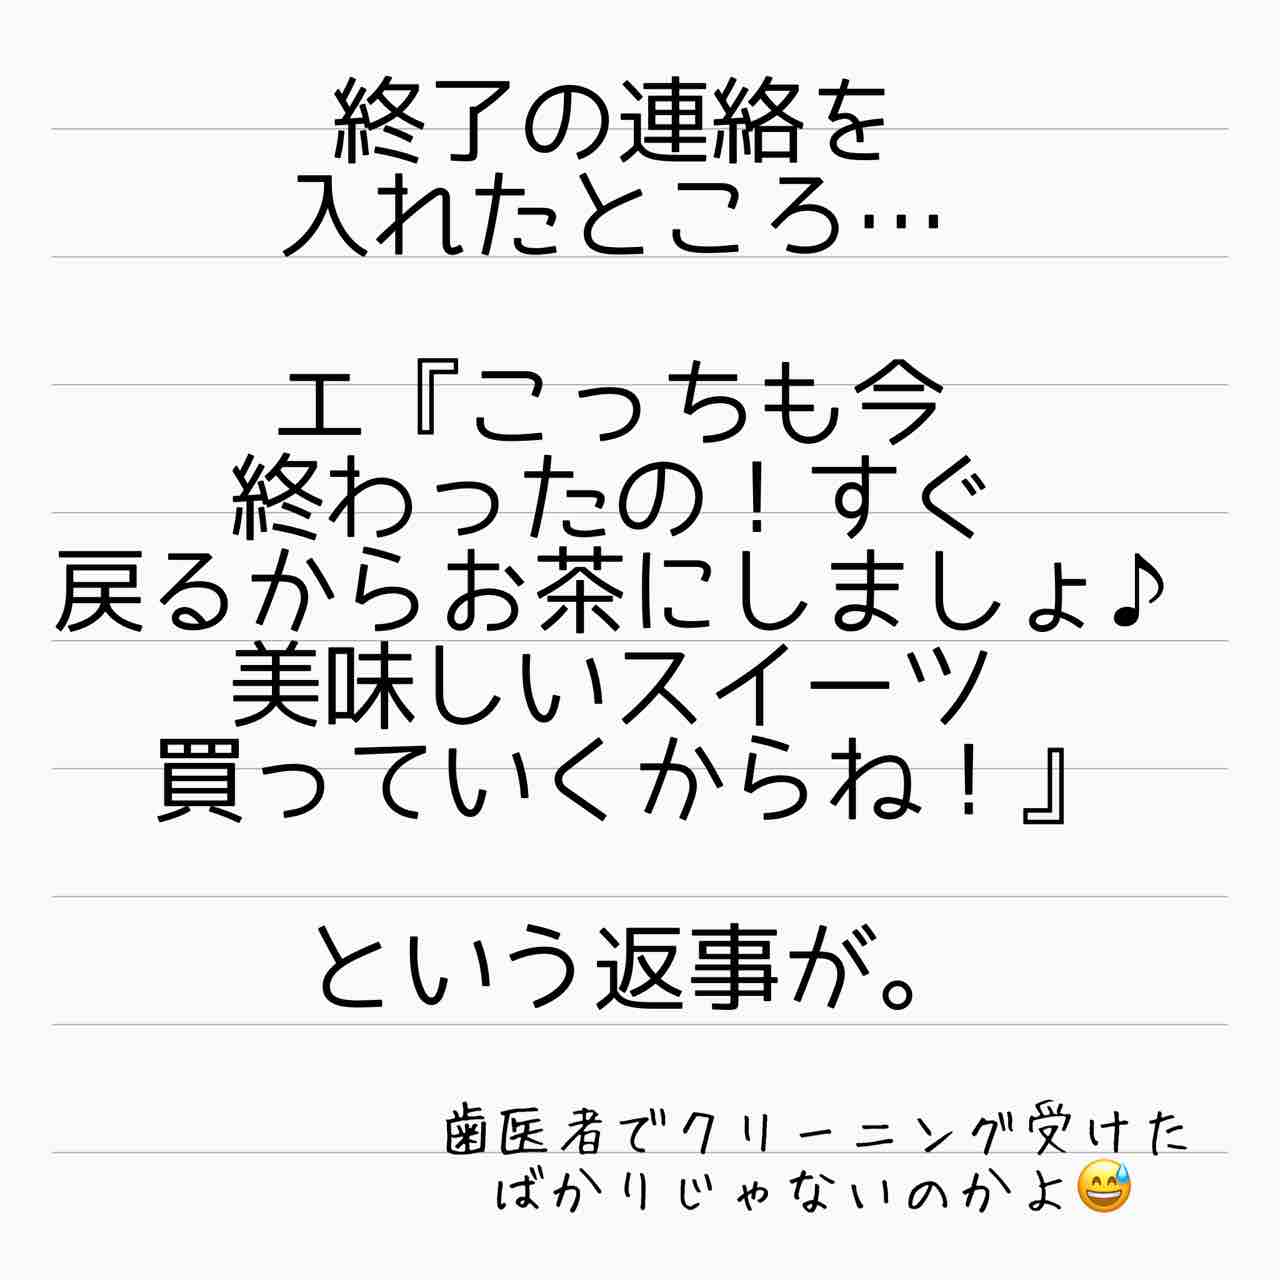 終了の連絡を
入れたところ…
エ『こっちも今
終わったの！すぐ
戻るからお茶にしましょ♪
美味しいスイーツ
買っていくからね！』
という返事が。
歯医者でクリーニング受けた
ばかりじゃないのかよ😅